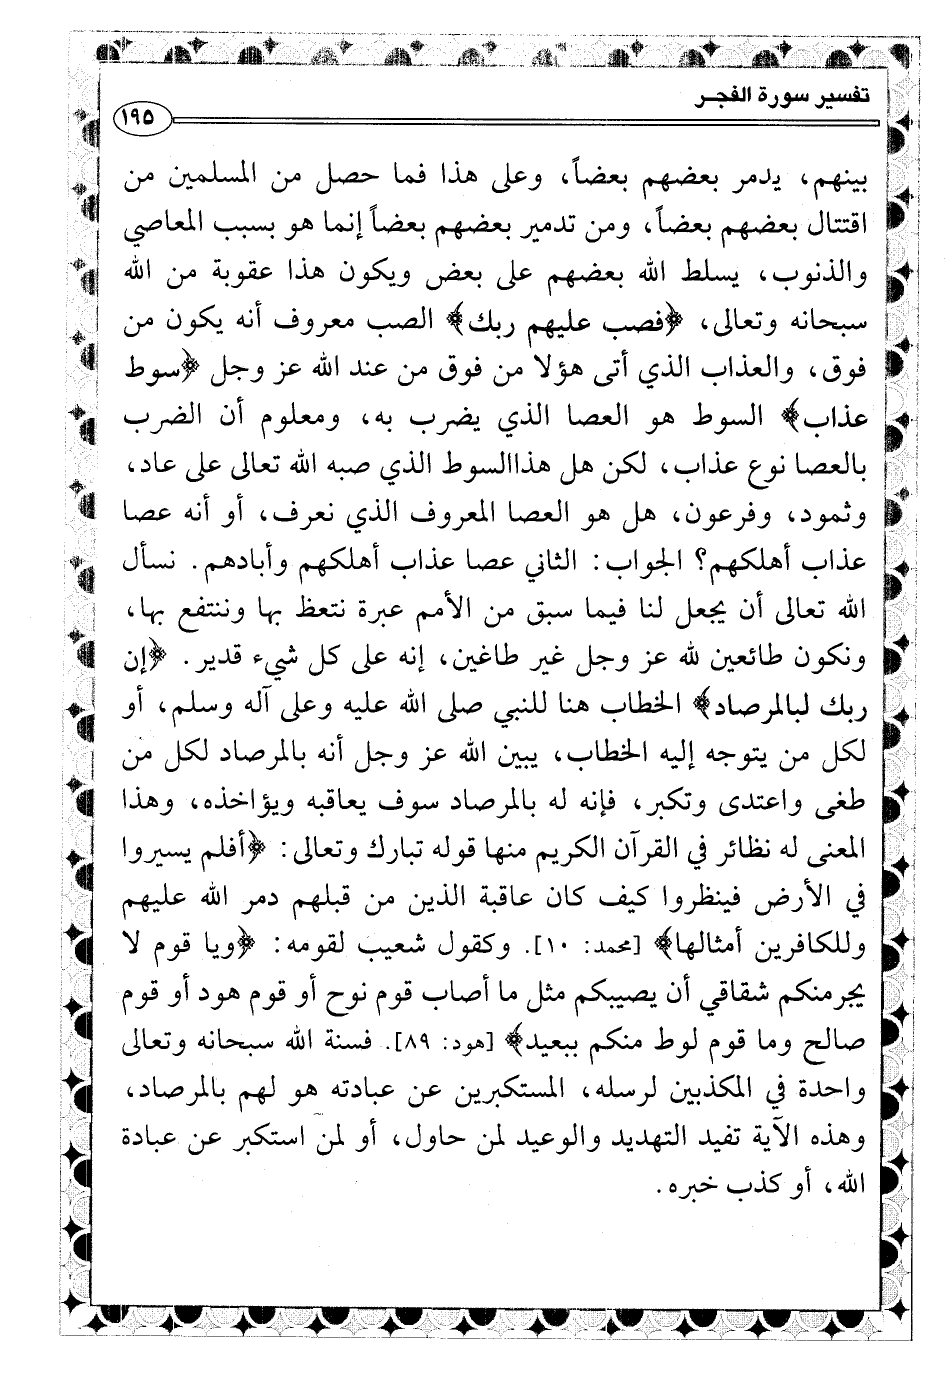 تفسير سورة الفجـر
١٩٥
بينهم، يدمر بعضهم بعضاً، وعلى هذا فما حصل من المسلمين من
اقتتال بعضهم بعضاً، ومن تدمير بعضهم بعضاً إنما هو بسبب المعاصي
والذنوب، يسلط الله بعضهم على بعض ويكون هذا عقوبة من الله
سبحانه وتعالى، ﴿فصب عليهم ربك﴾ الصب معروف أنه يكون من
فوق، والعذاب الذي أتى هؤلا من فوق من عند الله عز وجل ﴿سوط
عذاب﴾ السوط هو العصا الذي يضرب به، ومعلوم أن الضرب
بالعصا نوع عذاب، لكن هل هذاالسوط الذي صبه الله تعالى على عاد،
وثمود، وفرعون، هل هو العصا المعروف الذي نعرف، أو أنه عصا
عذاب أهلكهم؟ الجواب: الثاني عصا عذاب أهلكهم وأبادهم. نسأل
الله تعالى أن يجعل لنا فيما سبق من الأمم عبرة نتعظ بها وننتفع بها،
ونكون طائعين لله عز وجل غير طاغين، إنه على كل شيء قدير. ﴿إن
ربك لبالمرصاد﴾ الخطاب هنا للنبي صلى الله عليه وعلى آله وسلم، أو
لكل من يتوجه إليه الخطاب، يبين الله عز وجل أنه بالمرصاد لكل من
طغى واعتدى وتكبر، فإنه له بالمرصاد سوف يعاقبه ويؤاخذه، وهذا
المعنى له نظائر في القرآن الكريم منها قوله تبارك وتعالى: ﴿أفلم يسيروا
في الأرض فينظروا كيف كان عاقبة الذين من قبلهم دمر الله عليهم
وللكافرين أمثالها﴾ [محمد: ١٠]. وكقول شعيب لقومه: ﴿ويا قوم لا
يجرمنكم شقاقي أن يصيبكم مثل ما أصاب قوم نوح أو قوم هود أو قوم
صالح وما قوم لوط منكم ببعيد﴾ [هود: ٨٩]. فسنة الله سبحانه وتعالى
واحدة في المكذبين لرسله، المستكبرين عن عبادته هو لهم بالمرصاد،
وهذه الآية تفيد التهديد والوعيد لمن حاول، أو لمن استكبر عن عبادة
الله، أو كذب خبره.